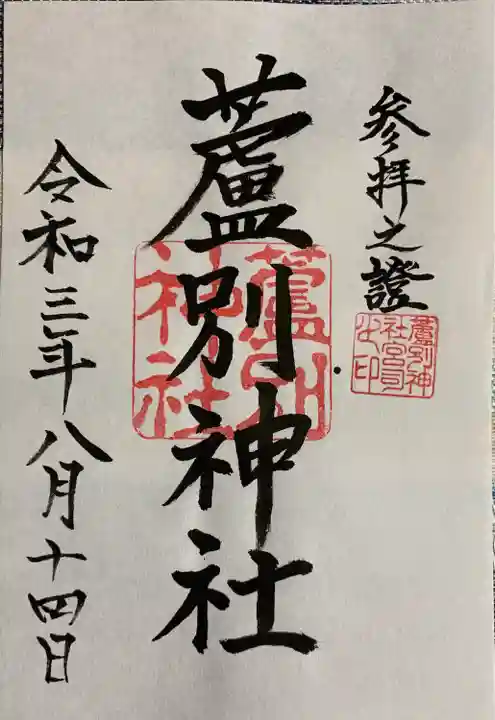 參拜之證
蘆別神
社宮司
之印
蘆別神社
蘆別
神社
令和三年八月十四日